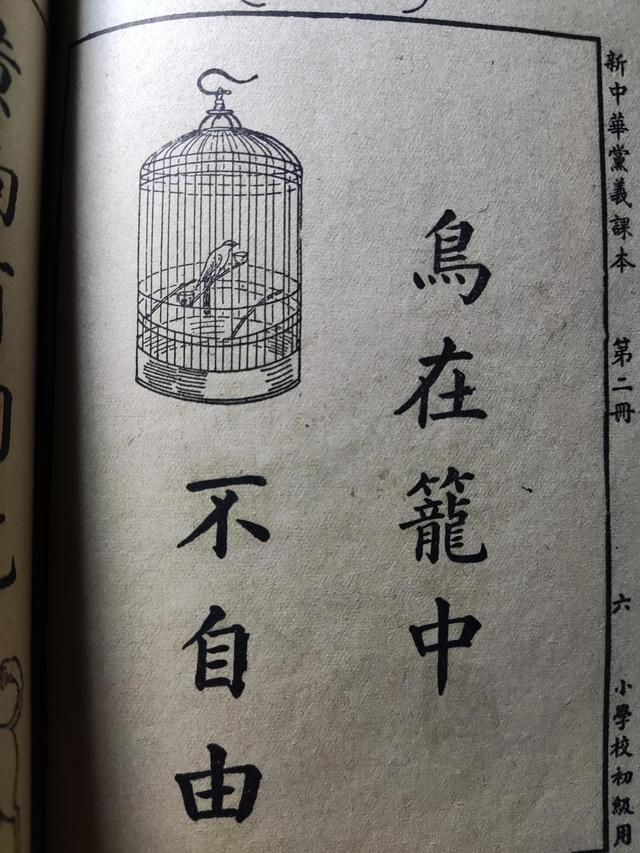 新中華黨義課本 第二冊 六 小學校初級用
鳥在籠中
不自由